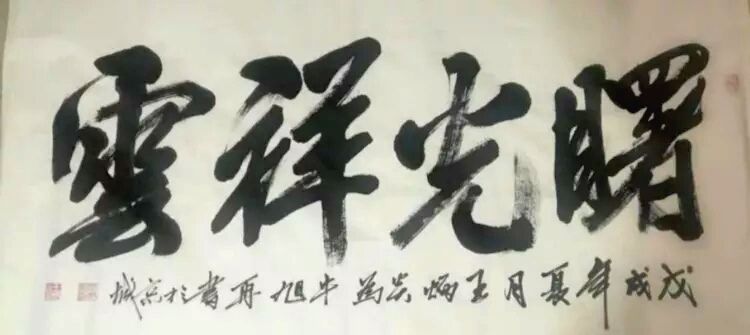 曙光祥雲
戊戌年夏月王炳炎為牛旭再書於京城